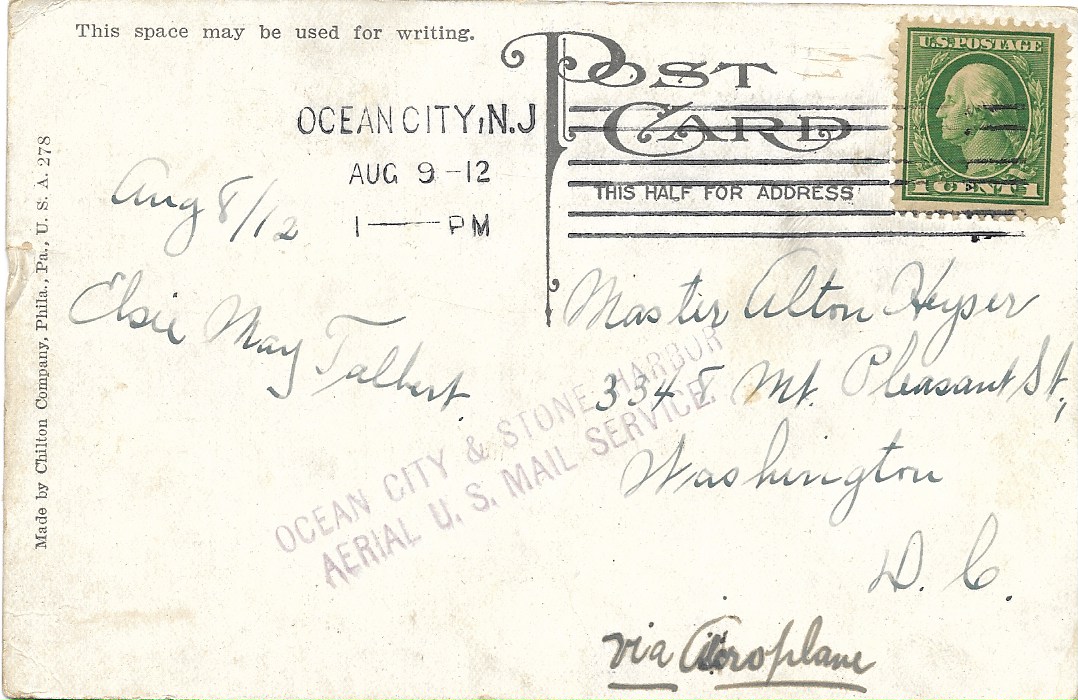 This space may be used for writing.
POST CARD
U.S. POSTAGE
1 CENT 1
OCEAN CITY, N.J
AUG 9 -12
1 — PM
THIS HALF FOR ADDRESS
Aug 8/12
Elsie May Talbert.
Made by Chilton Company, Phila., Pa., U. S. A. 278
Master Alton Heyser
Mt. Pleasant St.,
Washington
D. C.
OCEAN CITY & STONE HARBOR
AERIAL U. S. MAIL SERVICE.
via Aeroplane